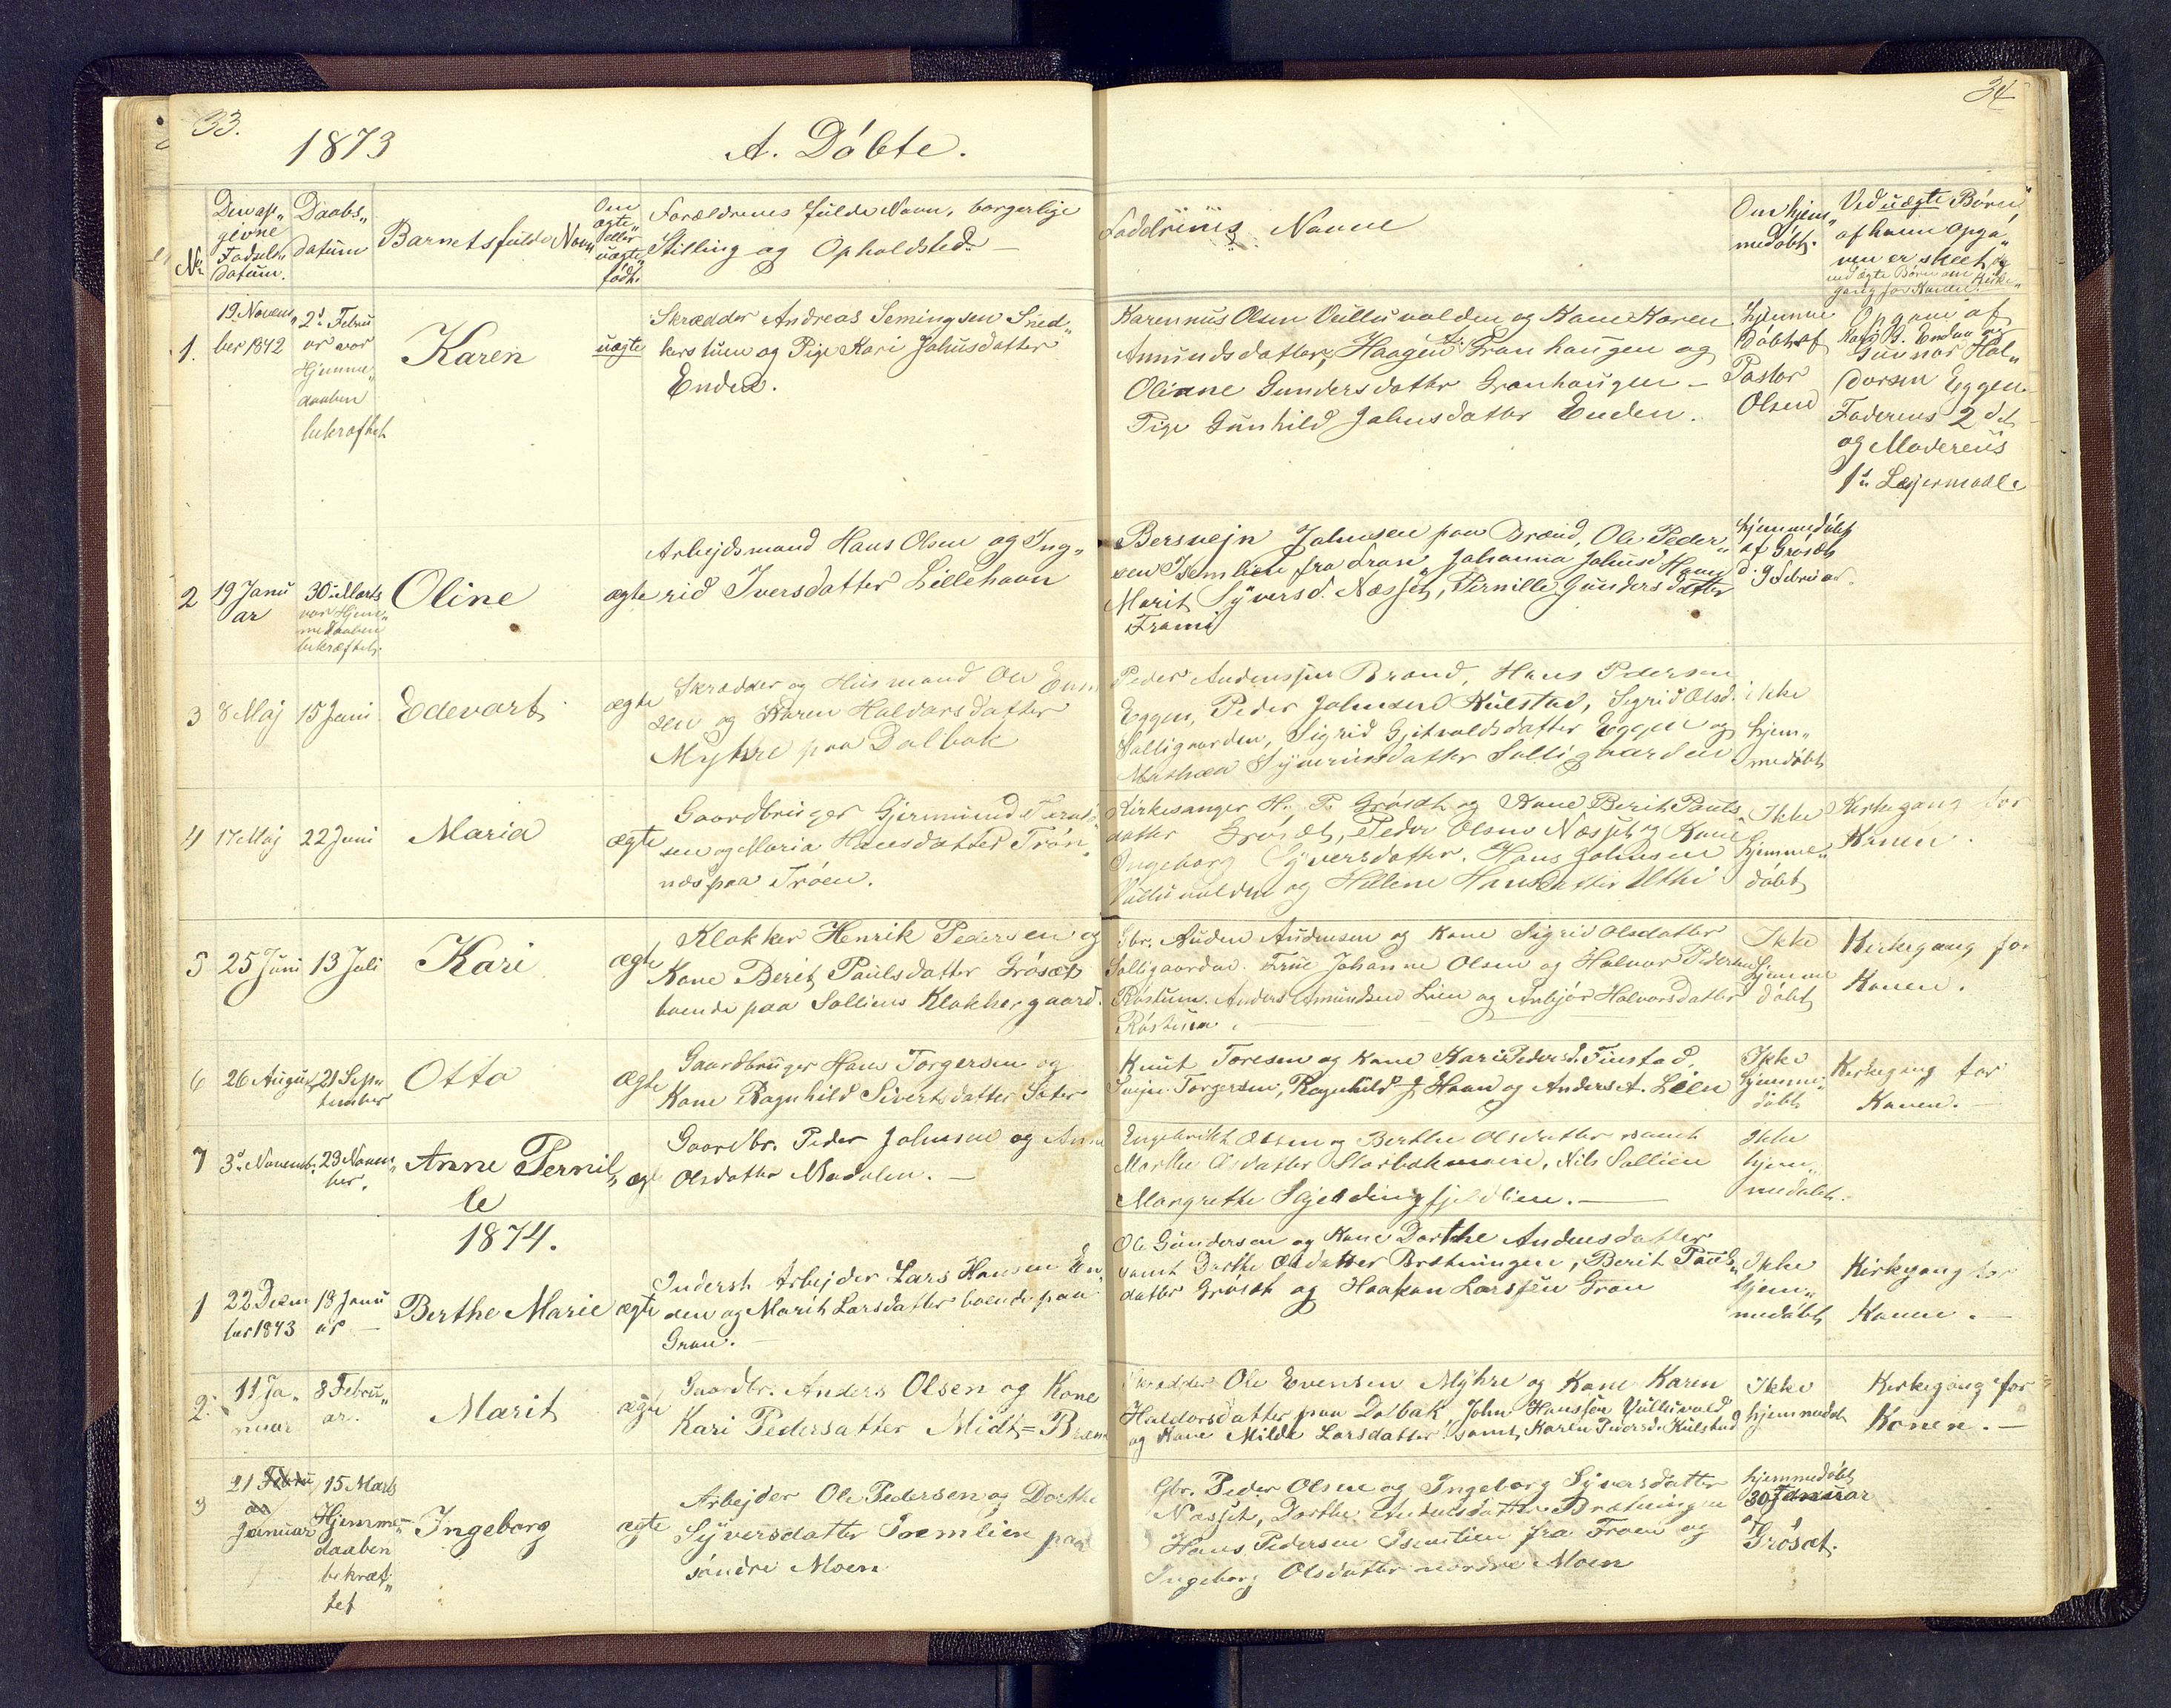 33.
1873
A. Döbte.
34
No
Den op„
givne
Fødsels
datum.
Daabs„
datum
Barnets fulde Navn
Om
ægte„
eller
uægte„
født.
Forældrenes fulde Navn, borgerlige
Stilling og Opholdsted
Faddernes Navne
Om hjem„
medöbt.
Ved uægte Börn
af hvem Opga„
ven er skeet, og
ved ægte Börn om Kirke„
gang for Konen.
1.
19. Novem„
ber 1872
2d Febru
ar var
Hjemme„
daaben
bekræftet
Karen
uægte
Skrædder Andreas Semingsen Sned„
kerstuen og Pige Kari Johnsdatter
Enden.
Karennus Olsen Vullu volden og Kone Karen
Amundsdatter, Haagen A. Granhaugen og
Oliane Gundersdatter Granhaugen –
Pige Gunhild Johnsdatter Enden.
Hjemme
Döbt af
Pastor
Olsen
Opgave af
Kari J. Enden og
Gunnar Hal„
dorsen Eggen.
Faderens 2det
og Moderens
1ste Lejermaal
2
19 Janu
ar
30 Marts
var Hjem„
medaaben
bekræftet.
Oline
ægte
Arbejdsmand Hans Olsen og Ing„
rid Iversdatter Lillehaavn
Bersvejn Johnsen paa Brænd, Ole Peder„
sen Isemlien fra Froen, Johanna Johnsd. Haavn
Marit Syversd. Næsset, Pernille Gundersdatter
Frami
hjemmedöbt
af Grösæt
d. 9 Februar.
3
8 Maj
15 Juni
Edevart
ægte
Skrædder og Husmand Ole Even
sen og Karen Haldorsdatter
Myhre paa Dalbak
Peder Andenssen Brænd, Hans Pedersen
Eggen, Peder Johnsen Kulstad, Sigrid Olsd.
Solligaarden, Sigrid Gjetvoldsdatter Eggen og
Mathea Syverinsdatter Solligaarden
ikke
hjem„
medöbt
4
17 Maj
22 Juni
Maria
ægte
Gaardbruger Gjermund
sen og Maria Hansdatter Trön„
næs paa Tröen.
Kirkesanger H. P. Grösæt og Kone Berit Pauls
datter Grösæt, Peder Olsen Næsset og Kone
Ingeborg Syversdatter. Hans Johnsen
Vullu volden og Helene Hansdatter Uthi
Ikke
hjemme„
döbt
Kirkegang for
Konen.
5
25 Juni
13 Juli
Kari
ægte
Klokker Henrik Pedersen og
Kone Berit Paulsdatter Grösæt
boende paa Solliens Klokkergaard.
Gbr. Auden Audensen og Kone Sigrid Olsdatter
Solligaarden. Frue Johanne Olsen og Halvor Pedersen
Röstum. Anders Amundsen Lien og Anbjör Halvorsdatter
Röstum.
Ikke
hjemme
döbt
Kirkegang for
Konen.
6
26 August
21 Sep„
tember
Otto
Ægte
Gaardbruger Hans Torgersen og
Kone Ragnhild Sivertsdatter Sæter
Knut Toresen og Kone Kari Pedersd. Finstad,
Torgersen, Ragnhild J. Haavn og Anders A. Lien
Ikke
hjemme„
döbt
Kirkegang for
Konen.
7
3d Novemb.
23 Novem„
ber.
Anne Pernil„
le
ægte
Gaardbr. Peder Johnsen og Anne
Olsdatter Nedalen.
Engebrikt Olsen og Berthe Olsdatter samt
Marthe Olsdatter Storbækmoen, Nils Sollien
Margrethe Skjeldingfjeldlien.
Ikke
hjem„
medöbt.
1874.
1
22 Decem
ber 1873
18 Janu
ar
Berthe Marie
ægte
Inderst Arbejder Lars Hansen En„
den og Marit Larsdatter boende paa
Gran.
Ole Gundersen og Kone Dorthe Audensdatter
samt Dorthe Olsdatter Bretningen, Berit Pauls„
datter Grösæt og Haakon Larssen Gran
Ikke
hjem„
medöbt
Kirkegang for
Konen.
2.
11 Ja„
nuar
8 Febru„
ar.
Marit
ægte
Gaardbr. Anders Olsen og Kone
Kari Pedersatter Midt=Brænd
Skrædder Ole Evensen Myhre og Kone Karen
Haldorsdatter paa Dalbak, John Hanssen Vulluvold
og Kone Milda Larsdatter samt Karen Iversd. Kulstad
Ikke
hjemmedöbt
Kirkegang for
Konen.
3
21 Febru
ar
Januar
15 Marts
Hjemme„
daaben
bekræf„
tet
Ingeborg
ægte
Arbejder Ole Pedersen og Dorthe
Syversdatter Isemlien paa
söndre Moen
Gbr. Peder Olsen og Ingeborg Syversdatter
Næsset, Dorthe Audensdatter Brætningen
Hans Pedersen Isemlien fra Froen og
Ingeborg Olsdatter nordre Moen
hjemmedöbt
30 Januar
af
Grösæt.